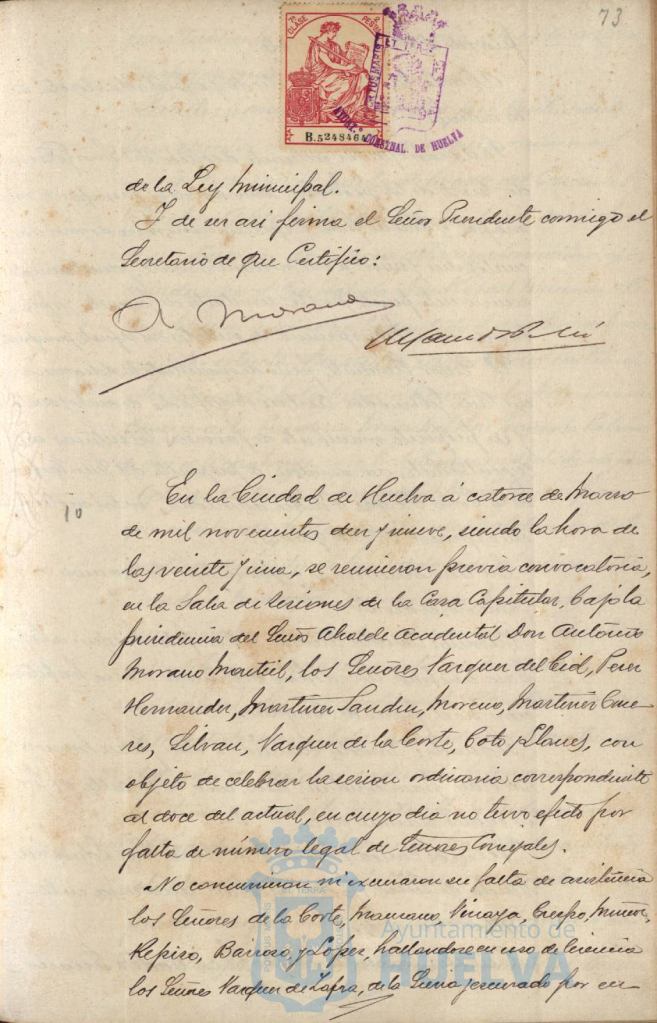 73
7ª CLASE 2 PESETAS
B.5248464
AYUNT.º CONSTNAL. DE HUELVA
de la Ley Municipal.
Y de ser asi firma el Señor Presidente conmigo el
Secretario de que Certifico:
A Morano
10
En la Ciudad de Huelva á catorce de Marzo
de mil novecientos diez y nueve, siendo la hora de
las veinte y una, se reunieron previa convocatoria,
en la Sala de Sesiones de la Casa Capitular, bajo la
presidencia del Señor Alcalde Accidental Don Antonio
Morano Montiel, los Señores Vazquez del Cid, Perez
Hernandez, Martinez Sanchez, Moreno, Martinez Cace
res, Silvan, Vazquez de la Corte, Coto y Llanes, con
objeto de celebrar la sesion ordinaria correspondiente
al doce del actual, en cuyo dia no tuvo efecto por
falta de número legal de Señores Concejales.
No concurrieron ni excusaron su falta de asistencia
los Señores de la Corte, Mascaros, Vizcaya, Crespo, Muñoz,
Repiso, Barroso y López, hallandose en uso de licencia
los Señores Vazquez de Zafra, de la Sierra y escusado por en
Ayuntamiento de
HUELVA